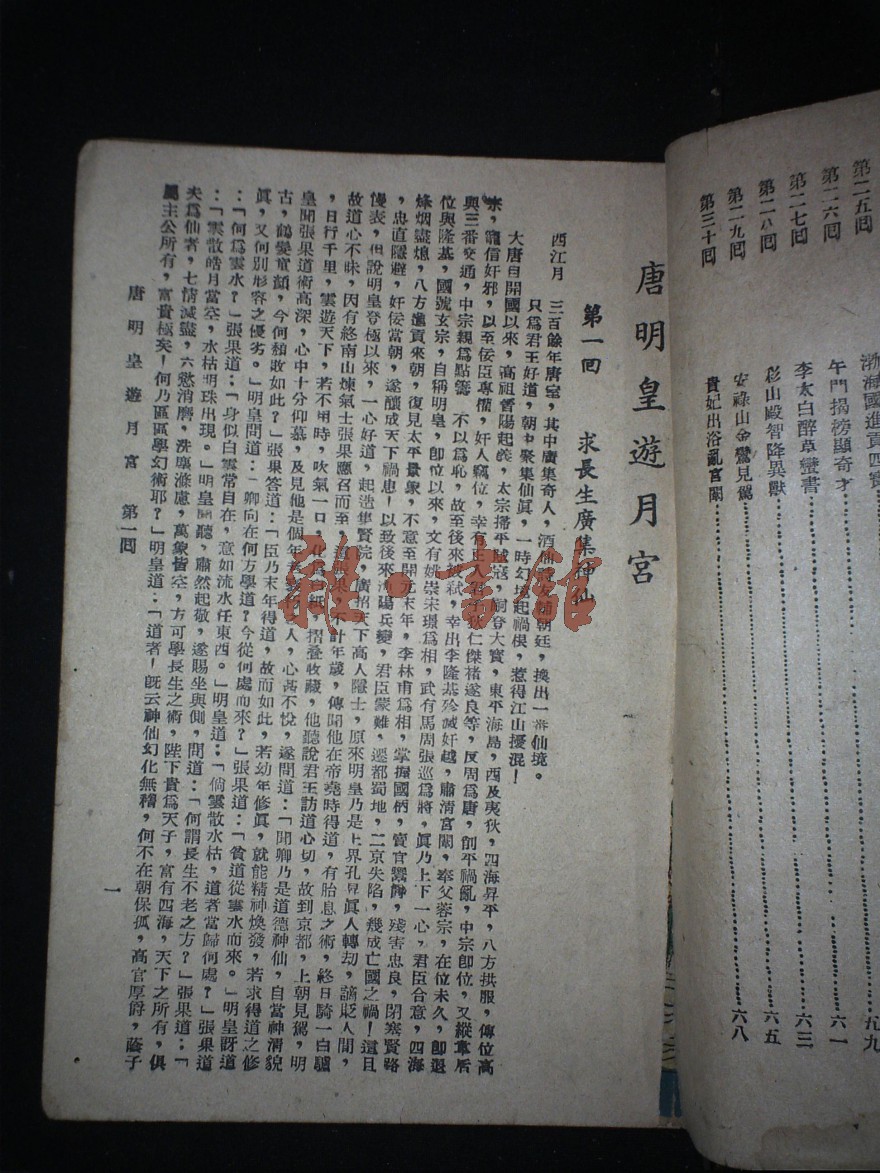 第二五回 渤海國進貢四寶……五九
第二六回 午門揭榜顯奇才……六一
第二七回 李太白醉草蠻書……六三
第二八回 彩山殿智降異獸……六五
第二九回 安祿山金鑾見駕
第三十回 貴妃出浴亂宮闈……六八
唐明皇遊月宮
第一回 求長生廣集神仙
西江月 三百餘年唐室，其中廣集奇人，酒仙 朝廷，換出一番仙境。
只為君王好道，朝中聚集仙眞，一時幻 起禍根，惹得江山擾混！
大唐自開國以來，高祖晉陽起義，太宗掃平 寇，嗣登大寶，東平海島，西及夷狄，四海昇平，八方拱服，傳位高
宗，寵信奸邪，以至佞臣專權，奸人竊位，幸有正人君子狄仁傑褚遂良等，反周為唐，創平禍亂，中宗卽位，又縱韋后
與三番交通，中宗親為點籌 不以為恥，故至後來被弒，幸出李隆基殄滅奸越，肅清宮闈，奉父睿宗，在位未久，卽退
位與隆基，國號玄宗，自稱明皇，卽位以來，文有姚崇宋璟為相，武有馬周張巡為將，眞乃上下一心，君臣合意，四海
烽烟盡熄，八方進貢來朝，復見太平景象，不意至開元末年，李林甫為相，掌握國柄，竇官 ，殘害忠良，閉塞賢路
，忠直隱避，奸佞當朝，遂釀成天下禍患！以致後來漁陽兵變，君臣蒙難，遷都蜀地，二京失陷，幾成亡國之禍！這且
慢表，但說明皇登極以來，一心好道，起造集賢院，廣招天下高人隱士，原來明皇乃是上界孔昇眞人轉劫，謫貶人間，
故道心不昧，因有終南山煉氣士張果應召而至，這張果，不計年歲，傳聞他在帝堯時得道，有胎息之術，終日騎一白驢
，日行千里，雲遊天下，若不用時，吹氣一口，化為白紙，摺叠收藏，他聽說君王訪道心切，故到京都，上朝見駕，明
皇聞張果道術高深，心中十分仰慕，及見他是個年老 人，心甚不悅，遂問道：「聞卿乃是道德神仙，自當神清貌
古，鶴髮童顏，今何頹敗如此？」張果答道：「臣乃末年得道，故而如此，若幼年修眞，就能精神煥發，若求得道之修
眞，又何別形容之優劣。」明皇問道：「卿向在何方學道？今從何處而來？」張果道：「貧道從雲水而來。」明皇訝道
：「何為雲水？」張果道：「身似白雲常自在，意如流水任東西。」明皇道：「倘雲散水枯，道者當歸何處？」張果道
：「雲散皓月當空，水枯明珠出現。」明皇聞聽，肅然起敬，遂賜坐與側，問道：「何謂長生不老之方？」張果道：「
夫為仙者，七情滅盡，六慾消磨，洗塵滌慮，萬象皆空，方可學長生之術，陛下貴為天子，富有四海，天下之所有，俱
屬主公所有，富貴極矣！何乃區區學幻術耶？」明皇道：「道者！旣云神仙幻化無稽，何不在朝保孤，高官厚爵，蔭子
唐明皇遊月宮 第一回 一
雅·書館